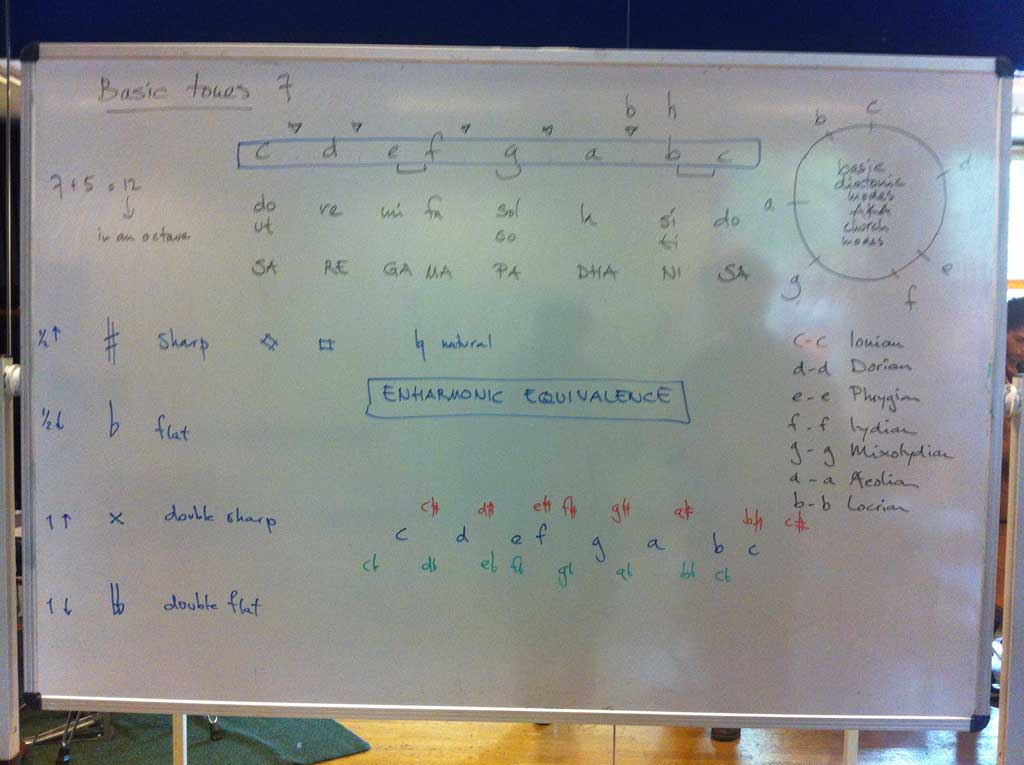 Basic tones 7
b h
c d e f g a b c
7 + 5 = 12
in an octave
do re mi fa sol la si do
ut so ti
SA RE GA MA PA DHA NI SA
½↑ # sharp # # ♮ natural
ENHARMONIC EQUIVALENCE
½↓ b flat
1↑ x double sharp
1↓ bb double flat
c# d# e# f# g# a# b# c#
c d e f g a b c
cb db eb fb gb ab bb cb
c
d
e
f
g
a
b
basic
diatonic
modes
church
modes
c-c Ionian
d-d Dorian
e-e Phrygian
f-f Lydian
g-g Mixolydian
a-a Aeolian
b-b Locrian